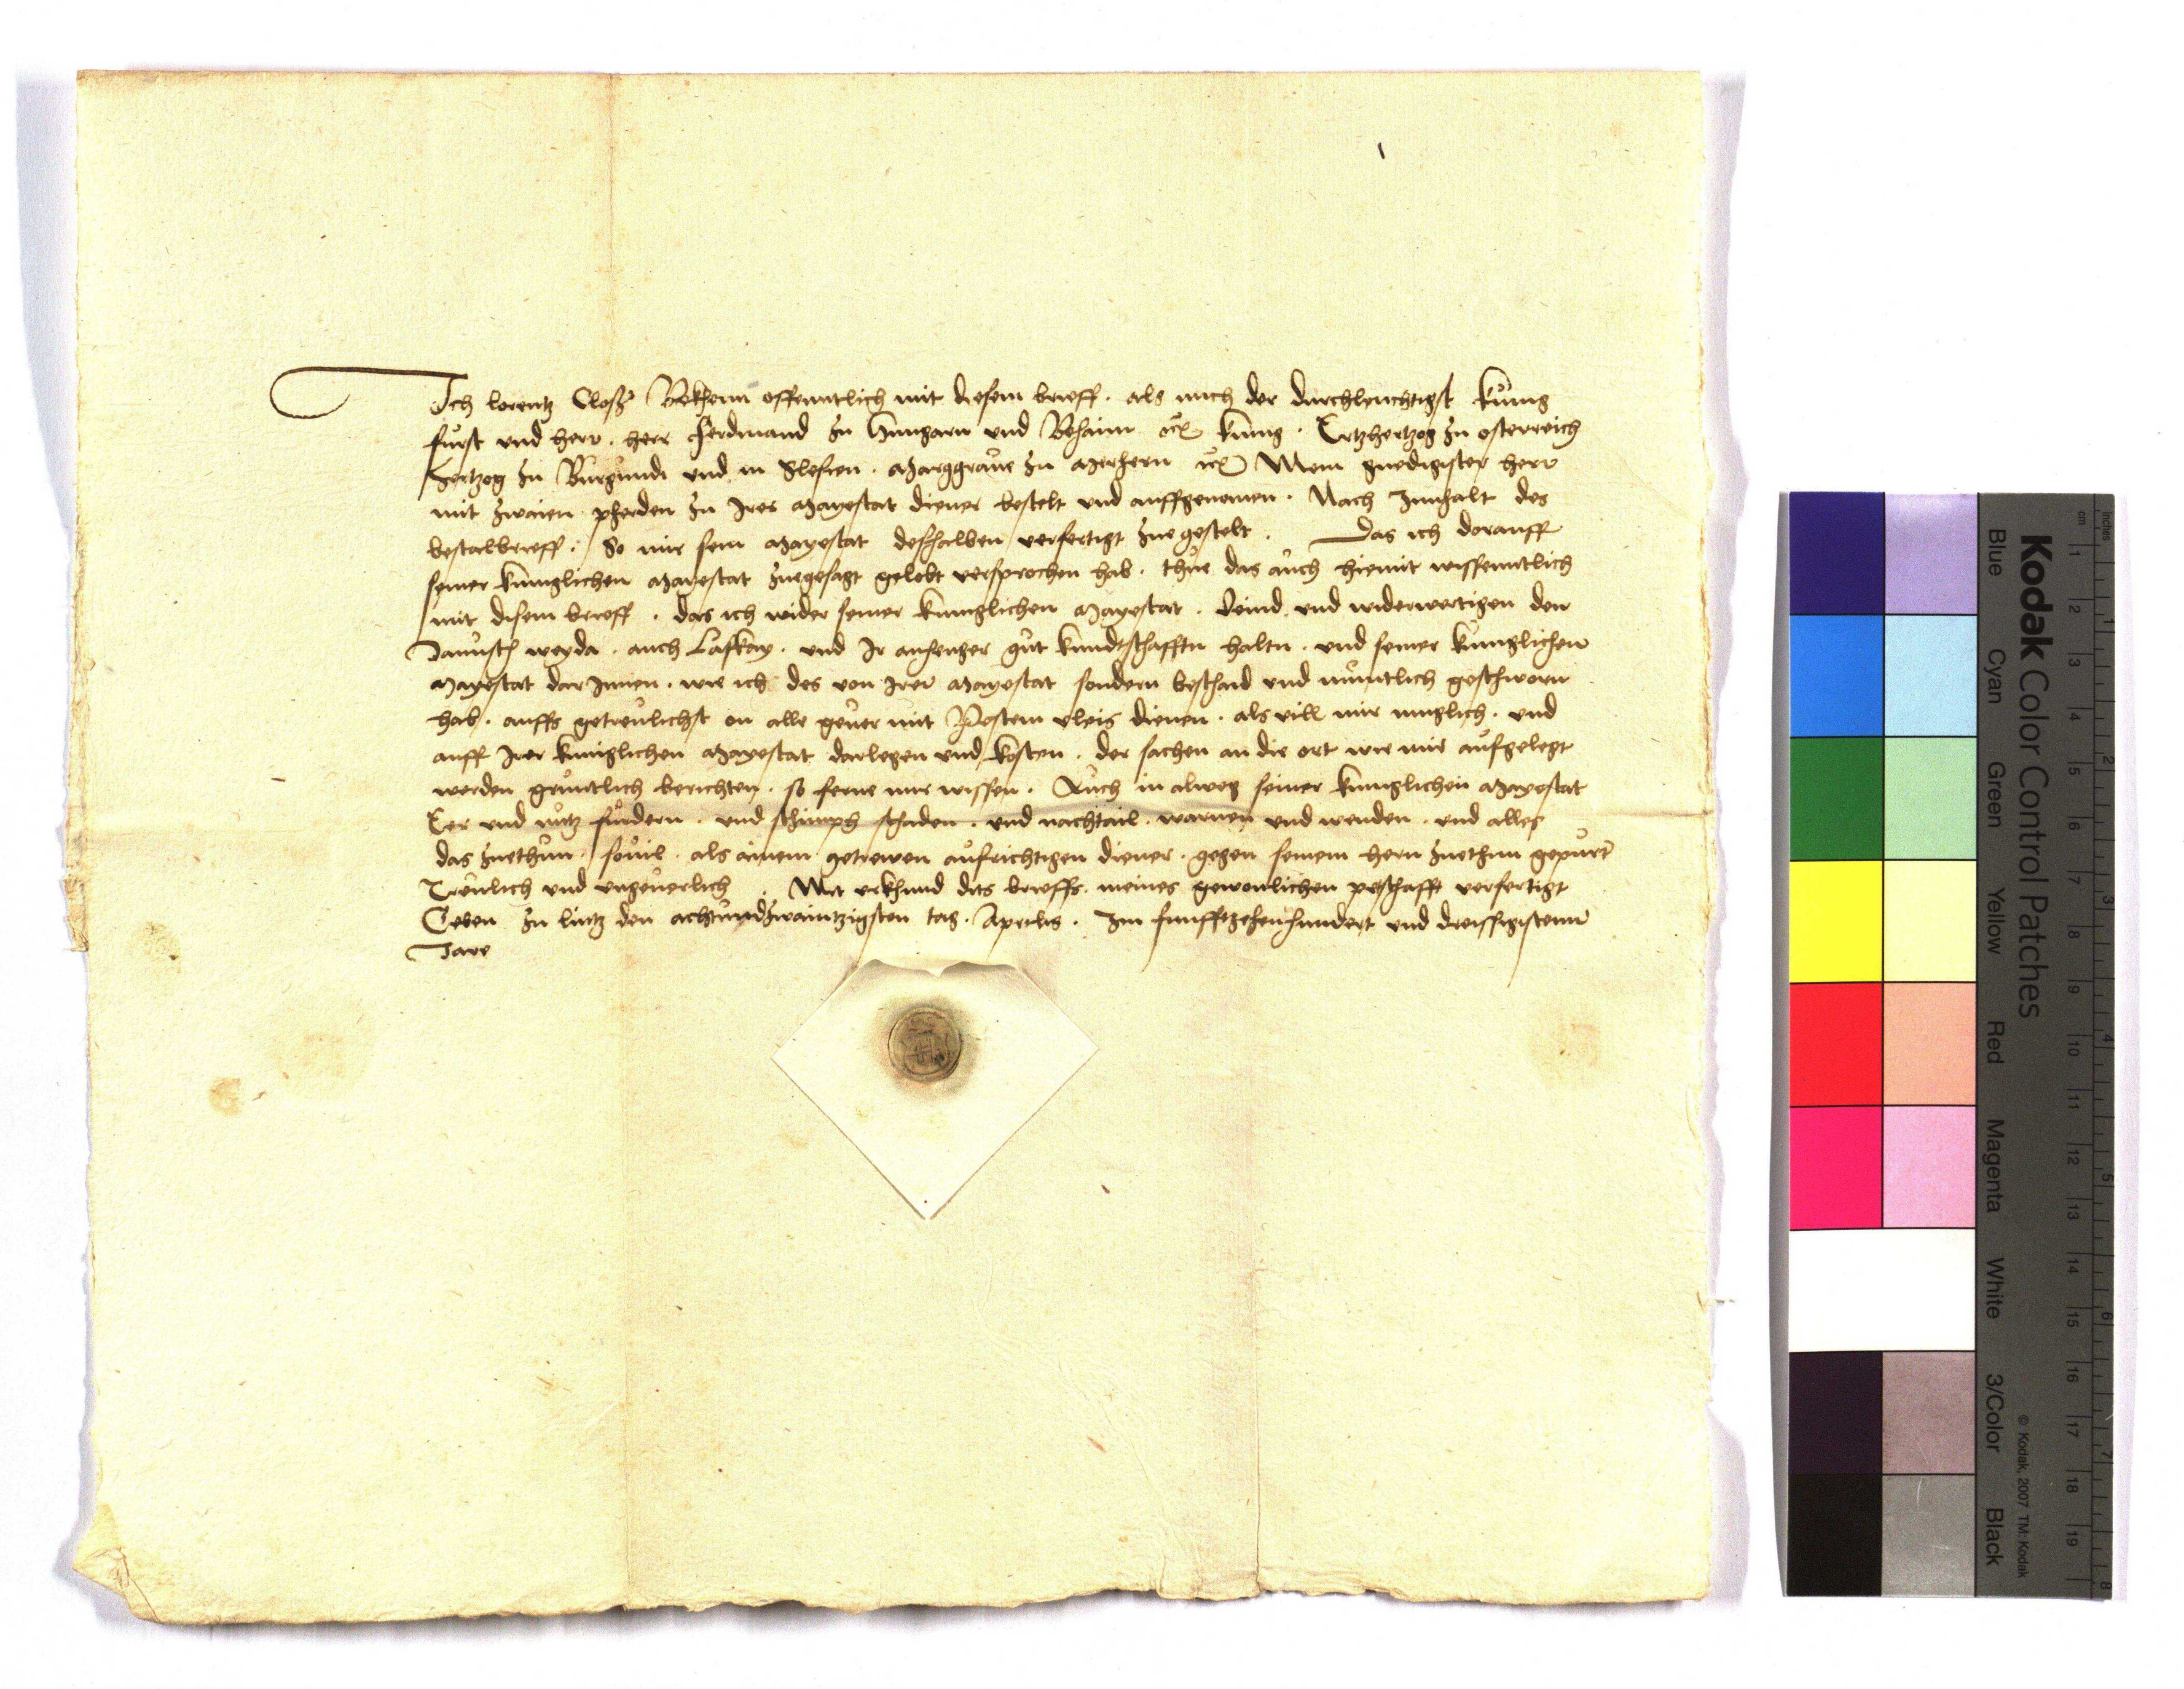 Ich lorentz Closß Bekhenn offenntlich mit diesem brieff. als mich der durchleuchtigst kunig
furst und herr. herr Ferdinand zu Hungarn und Behaim etc kunig. Ertzhertzog zu osterreich
Hertzog zu Burgundi und in Slesien. Marggraue zu Merhern etc Mein gnedigister herr
mit zwaien pherden zu Irer Mayestat diener bestelt und auffgenomen. Nach Innhalt des
bestalbrieff. So mir sein Mayestat deshalben verfertigt zuegestelt. Das ich dorauff
seiner kuniglichen Mayestat zuegesagt gelobt versprochen hab. thue das auch hiemit wissenntlich
mit disem brieff. das ich wider seiner kuniglichen Mayestat. veind und widerwertigen den
Janusch weyda. auch Laskay. und Ir anhenger gut kundtschafften haltn. und seiner kuniglichen
Mayestat dar Innen. wie ich des von Irer Mayestat sondern beschaid und muntlich geschworn
hab. auffs getreulichst on alle geuer mit Postem vleis dienen. als vill mir muglich. und
auff Irer kuniglichen Mayestat darlegen und kosten. der sachen an die ort wie mir aufgelegt
werden gruntlich berichten. so ferne mir wissen. Auch in alweg seiner kuniglichen Mayestat
Eer und nutz furdern. und schimph schaden. und nachtail. warnen und wenden. und alles
das zuethun. souil. als ainem getrewen aufrichtigen diener. gegen seinem hern zuethun gepurt
Treulich und ungeuerlich. Mit urkhund dits brieffs. meines gewonlichen petschafft verfertigt
Geben zu lintz den achtundzwaintzigsten tag. Aprilis. Im funfftzehenhundert und dreissigistenn
Jare
Kodak Color Control Patches
Blue Cyan Green Yellow Red Magenta White 3/Color Black
© Kodak, 2007 TM: Kodak
inches 1 2 3 4 5 6 7 8
cm 1 2 3 4 5 6 7 8 9 10 11 12 13 14 15 16 17 18 19